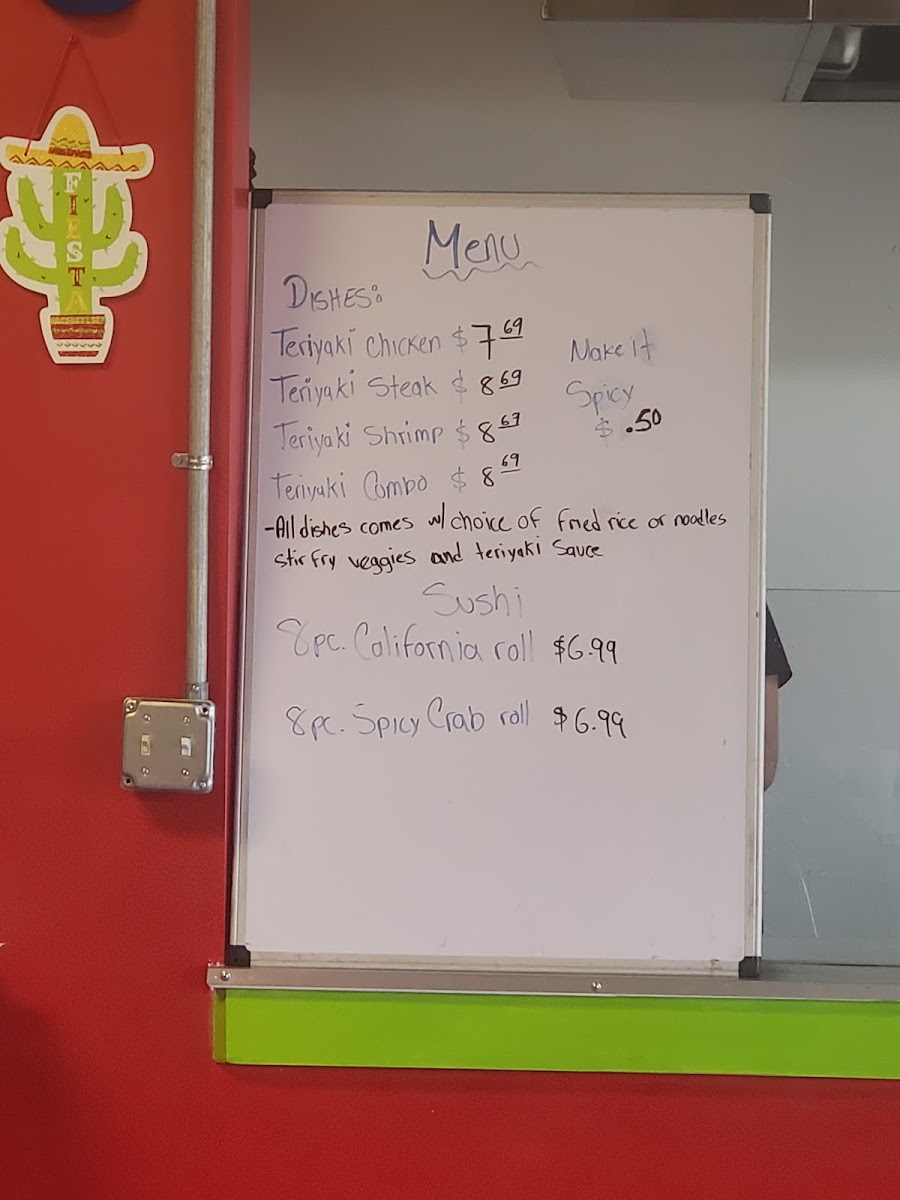 FIESTA
Menu
DISHES:
Teriyaki Chicken $7.69
Teriyaki Steak $8.69
Teriyaki Shrimp $8.69
Teriyaki Combo $8.69
Make it
Spicy
$.50
-All dishes comes w/ choice of fried rice or noodles
stir fry veggies and teriyaki Sauce
Sushi
8pc. California roll $6.99
8pc. Spicy Crab roll $6.99